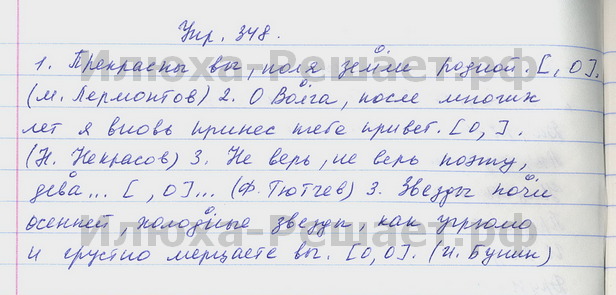 Упр. 348.
1. Прекрасны вы, поля земли родной. [ , О].
(М. Лермонтов) 2. О Волга, после многих
лет я вновь принес тебе привет. [О, ].
(Н. Некрасов) 3. Не верь, не верь поэту,
дева... [ , О]... (Ф. Тютчев) 3. Звезды ночи
осенней, холодные звезды, как угрюмо
и грустно мерцаете вы. [О, О]. (И. Бунин)
Илюха-Решает.рф
Илюха-Решает.рф
Илюха-Решает.рф